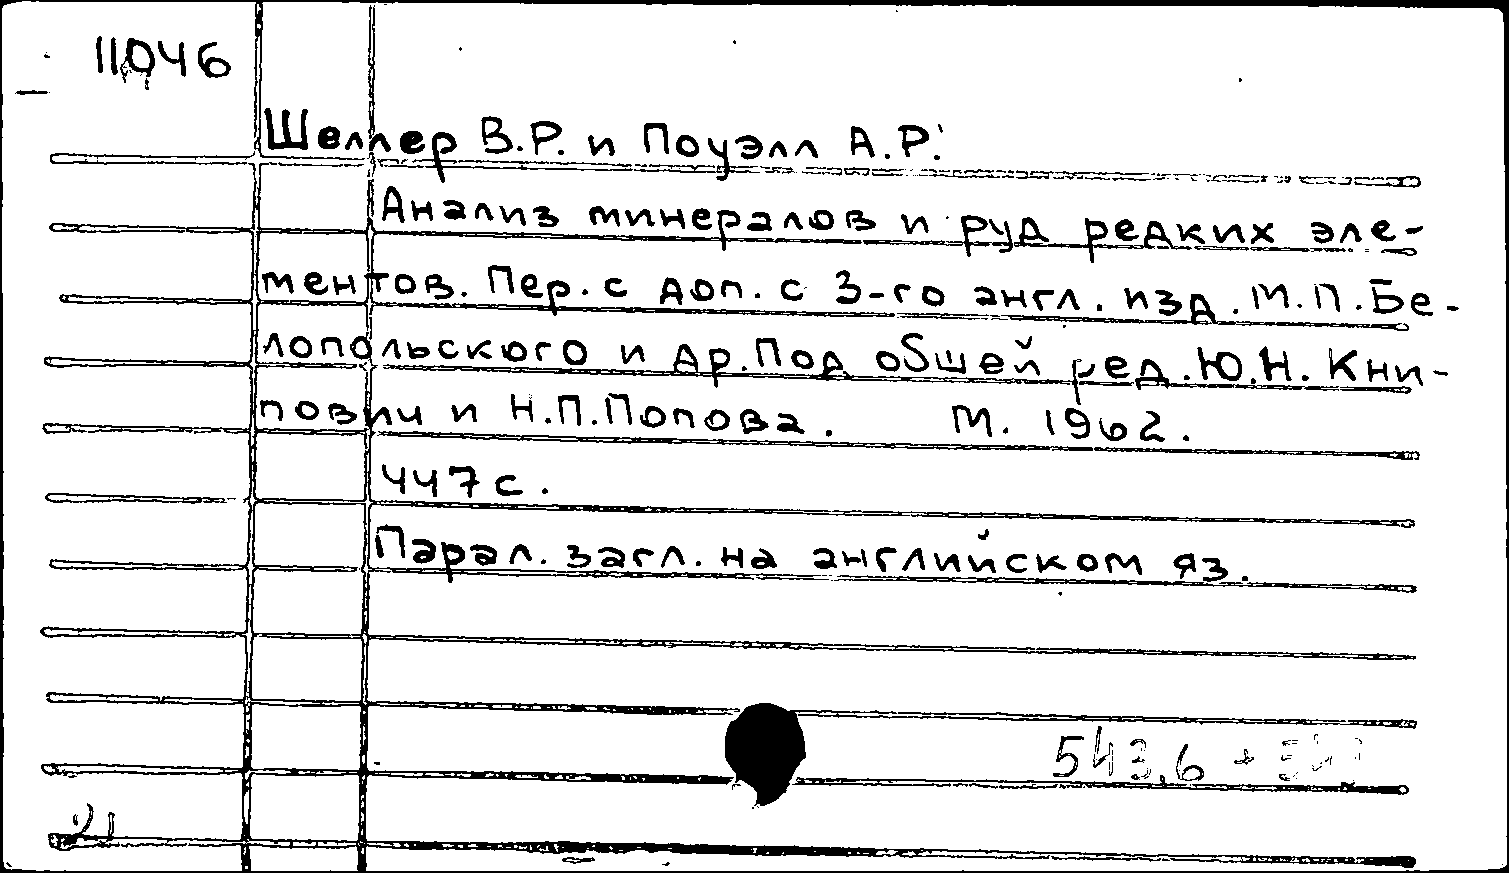 11046
Шеллер В.Р. и Поуэлл А.Р.
Анализ минералов и руд редких эле-
ментов. Пер. с доп. с 3-го англ. изд. М.П. Бе-
лопольского и др. Под общей ред. Ю.Н. Кни-
пович и Н.П. Попова. М. 1962.
447 с.
Парал. загл. на английском яз.
543.6 +